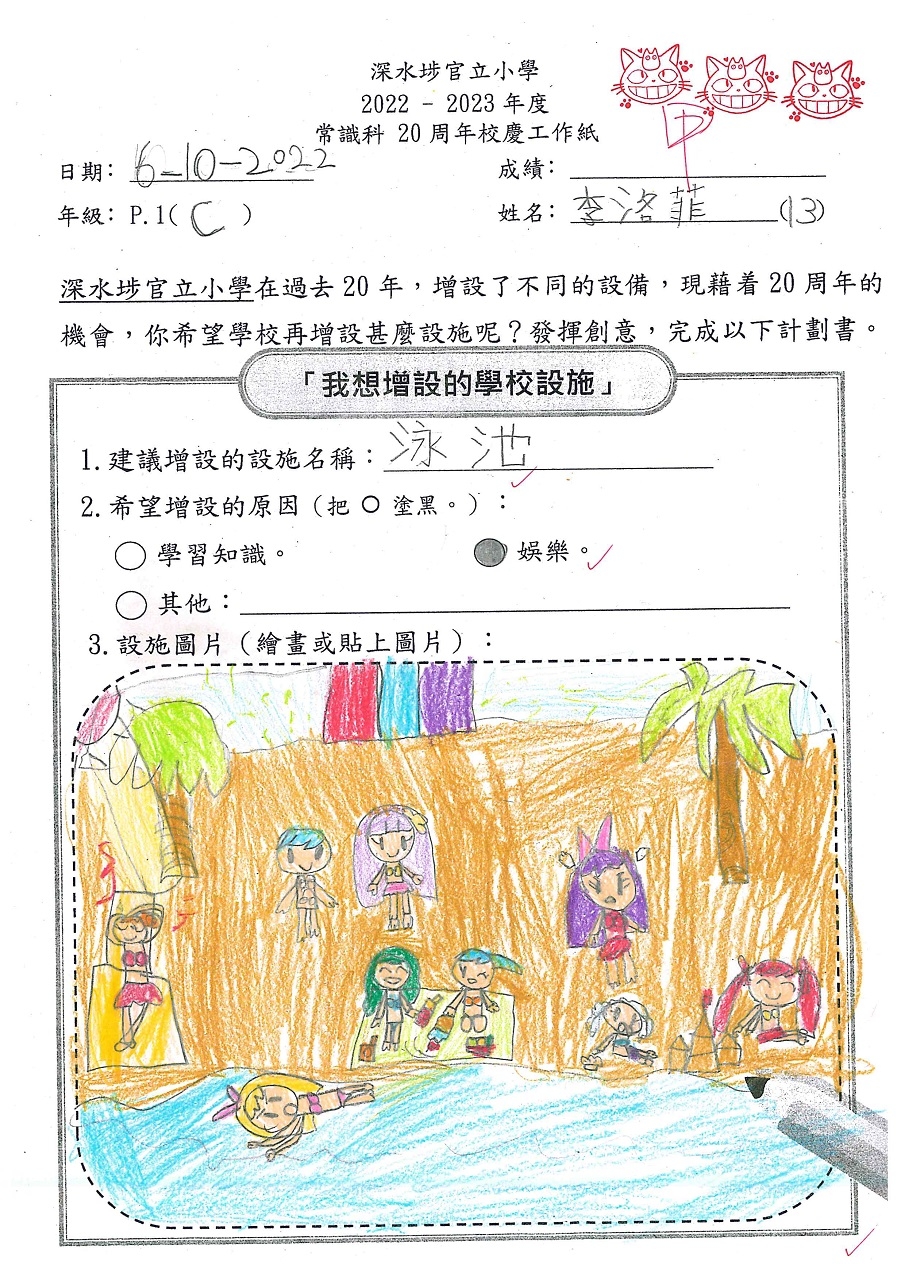 深水埗官立小學
2022 - 2023 年度
常識科 20 周年校慶工作紙
日期: 6-10-2022 成績: 甲
年級: P.1( C ) 姓名: 李洛菲 (13)
深水埗官立小學在過去 20 年，增設了不同的設備，現藉着 20 周年的
機會，你希望學校再增設甚麼設施呢？發揮創意，完成以下計劃書。
「我想增設的學校設施」
1. 建議增設的設施名稱：泳池
2. 希望增設的原因（把 O 塗黑。）：
學習知識。 娛樂。
其他：
3. 設施圖片（繪畫或貼上圖片）：